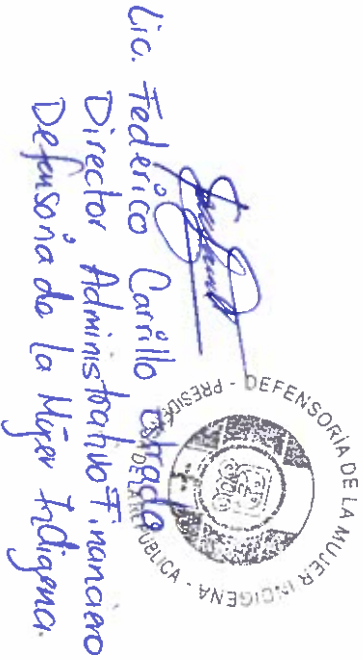 Lic. Federico Carrillo
Director Administrativo Financiero
Defensoria de la Mujer Indígena.
DEFENSORIA DE LA MUJER INDIGENA - PRESIDENCIA DE LA REPUBLICA -